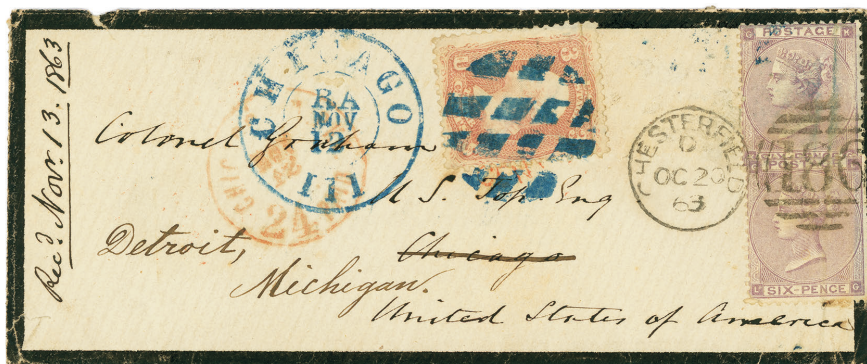 Rec.d Nov. 13. 1863
CHICAGO
RA
NOV
12
Ill
24
CHESTERFIELD
D
OC 29
63
POSTAGE
186
SIX-PENCE
Colonel Graham
U S. Top. Eng
Chicago
Detroit,
Michigan.
United States of America